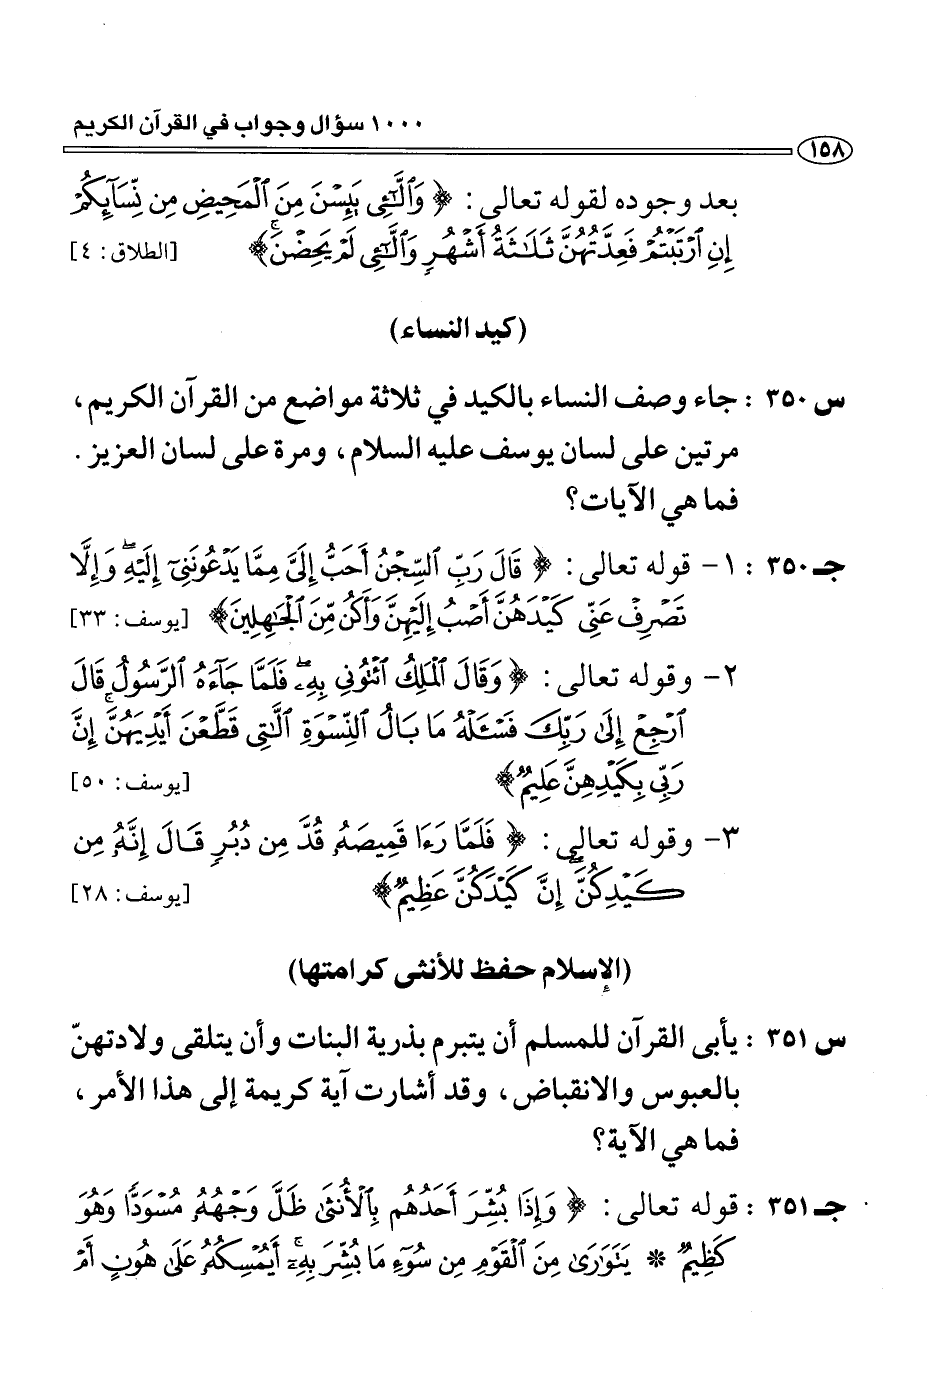 ١٠٠٠ سؤال وجواب في القرآن الكريم
١٥٨
بعد وجوده لقوله تعالى: ﴿ وَٱلَّٰٓـِٔى يَئِسْنَ مِنَ ٱلْمَحِيضِ مِن نِّسَآئِكُمْ
إِنِ ٱرْتَبْتُمْ فَعِدَّتُهُنَّ ثَلَٰثَةُ أَشْهُرٍ وَٱلَّٰٓـِٔى لَمْ يَحِضْنَ ۚ﴾ [الطلاق: ٤]
(كيد النساء)
س ٣٥٠ : جاء وصف النساء بالكيد في ثلاثة مواضع من القرآن الكريم،
مرتين على لسان يوسف عليه السلام، ومرة على لسان العزيز.
فما هي الآيات؟
جـ ٣٥٠ : ١- قوله تعالى: ﴿ قَالَ رَبِّ ٱلسِّجْنُ أَحَبُّ إِلَىَّ مِمَّا يَدْعُونَنِىٓ إِلَيْهِ ۖ وَإِلَّا
تَصْرِفْ عَنِّى كَيْدَهُنَّ أَصْبُ إِلَيْهِنَّ وَأَكُن مِّنَ ٱلْجَٰهِلِينَ﴾ [يوسف: ٣٣]
٢- وقوله تعالى: ﴿ وَقَالَ ٱلْمَلِكُ ٱئْتُونِى بِهِۦ ۖ فَلَمَّا جَآءَهُ ٱلرَّسُولُ قَالَ
ٱرْجِعْ إِلَىٰ رَبِّكَ فَسْـَٔلْهُ مَا بَالُ ٱلنِّسْوَةِ ٱلَّٰتِى قَطَّعْنَ أَيْدِيَهُنَّ ۚ إِنَّ
رَبِّى بِكَيْدِهِنَّ عَلِيمٌ﴾ [يوسف: ٥٠]
٣- وقوله تعالى: ﴿ فَلَمَّا رَءَا قَمِيصَهُۥ قُدَّ مِن دُبُرٍ قَالَ إِنَّهُۥ مِن
كَيْدِكُنَّ ۖ إِنَّ كَيْدَكُنَّ عَظِيمٌ﴾ [يوسف: ٢٨]
(الإسلام حفظ للأنثى كرامتها)
س ٣٥١ : يأبى القرآن للمسلم أن يتبرم بذرية البنات وأن يتلقى ولادتهنّ
بالعبوس والانقباض، وقد أشارت آية كريمة إلى هذا الأمر،
فما هي الآية؟
جـ ٣٥١ : قوله تعالى: ﴿ وَإِذَا بُشِّرَ أَحَدُهُم بِٱلْأُنثَىٰ ظَلَّ وَجْهُهُۥ مُسْوَدًّا وَهُوَ
كَظِيمٌ * يَتَوَٰرَىٰ مِنَ ٱلْقَوْمِ مِن سُوٓءِ مَا بُشِّرَ بِهِۦٓ ۚ أَيُمْسِكُهُۥ عَلَىٰ هُونٍ أَمْ